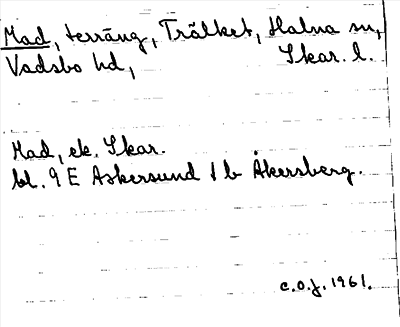 Mad, terräng, Trälket, Halna sn,
Vadsbo hd, Skar. l.
Mad, ek. Skar.
bl. 9 E Askersund 1 b Åkersberg.
c.o.j. 1961.